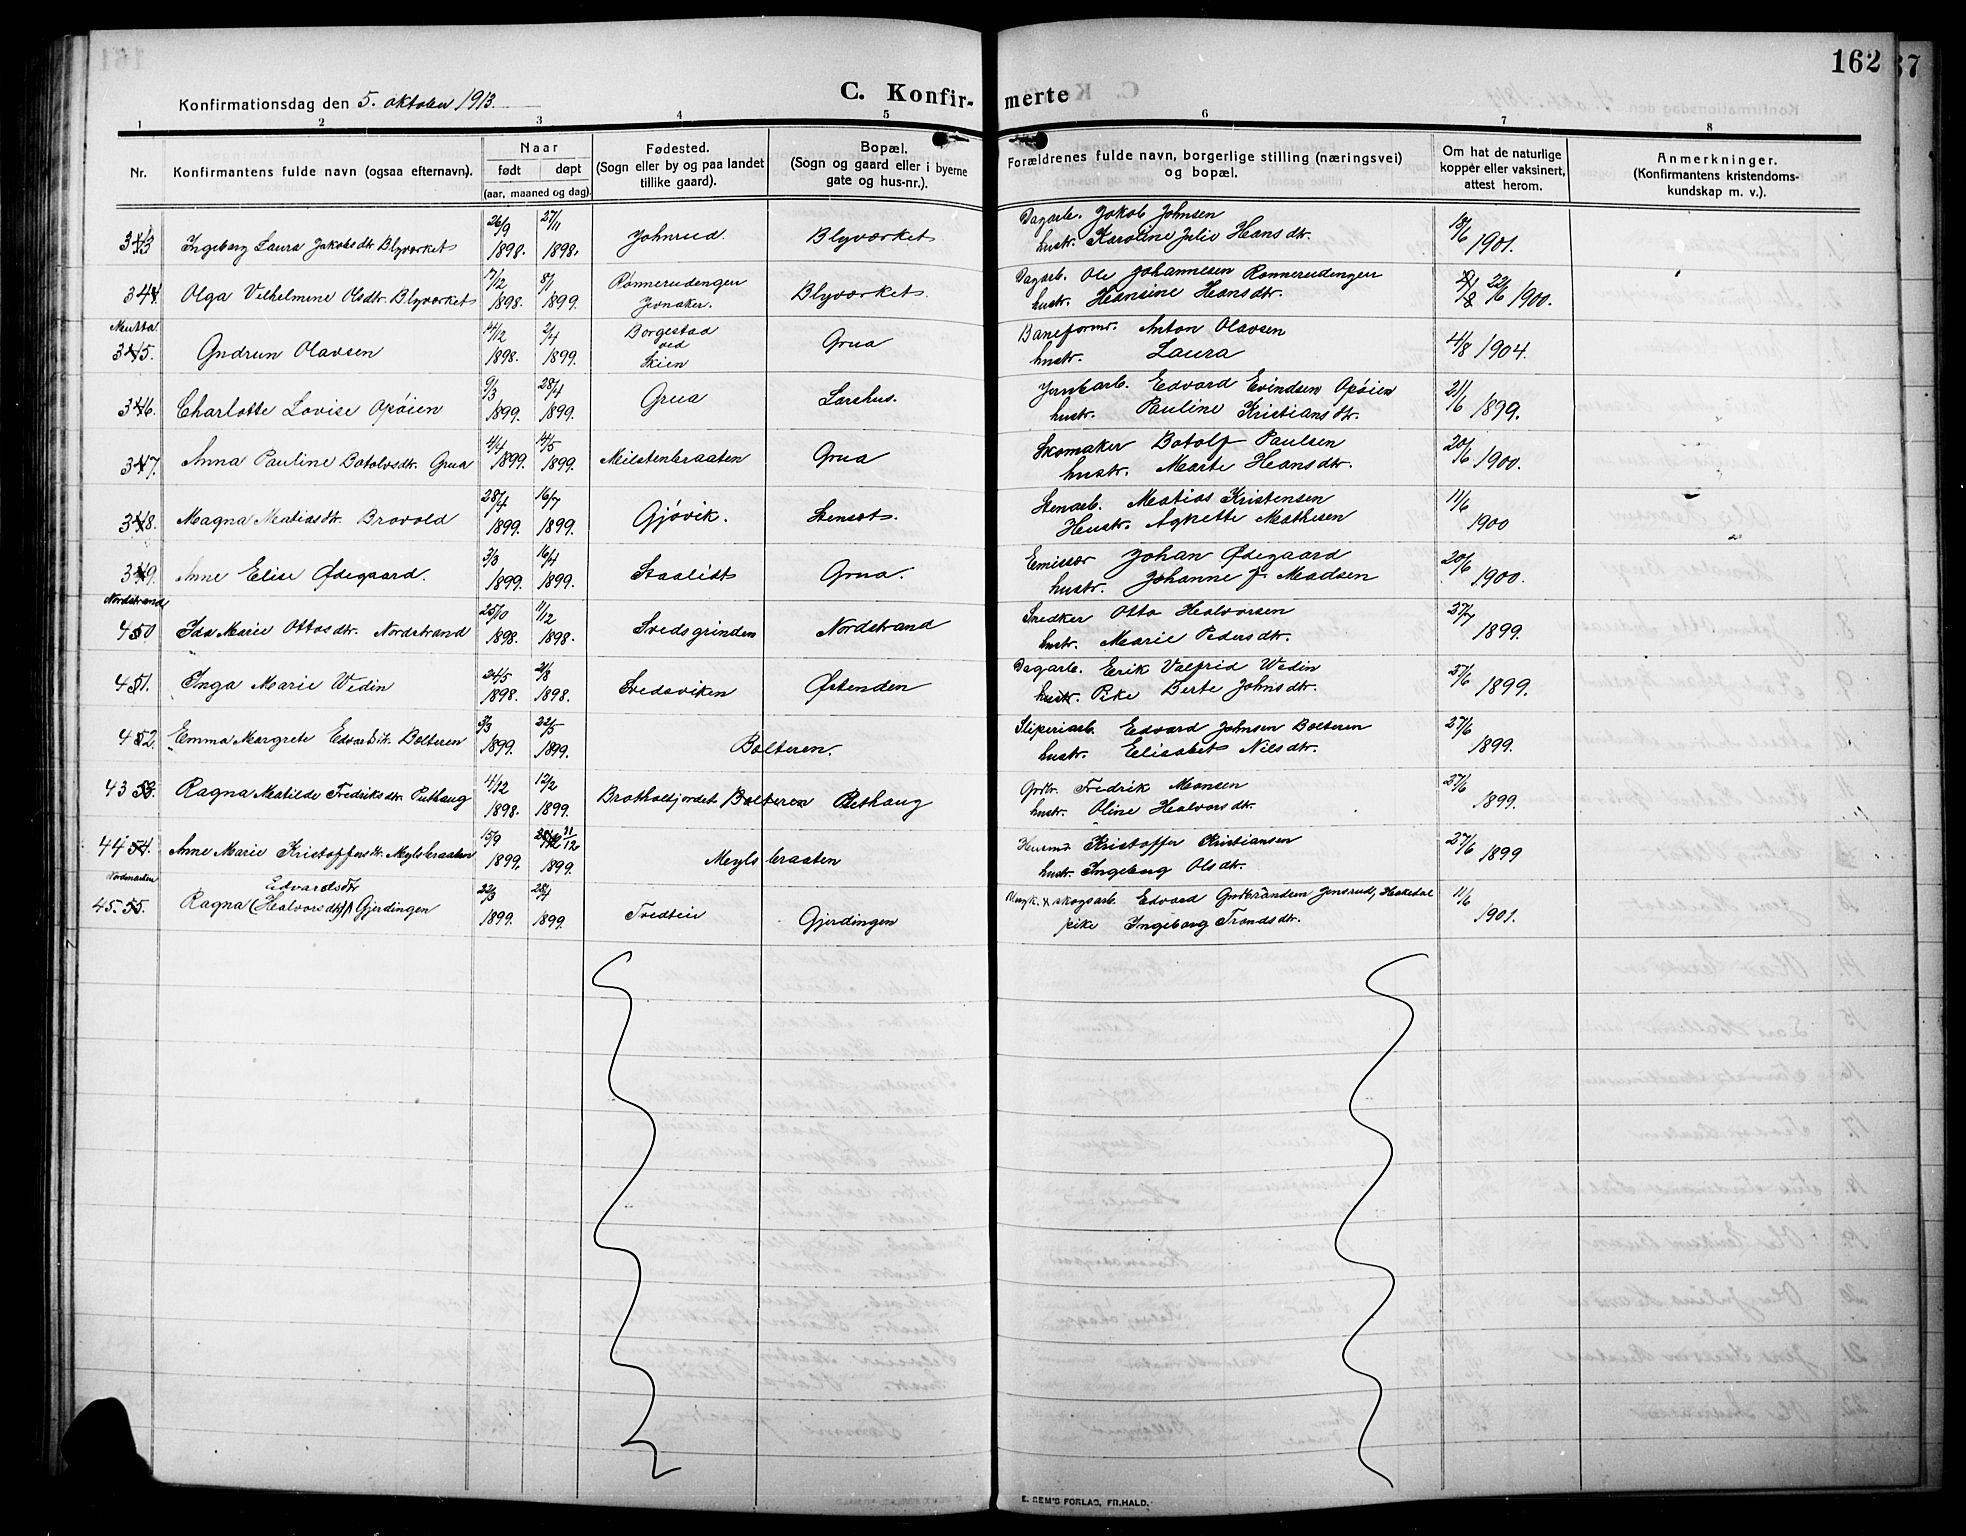 162
37
Konfirmationsdag den 5. oktober 1913.
C. Konfir-
merte
1 2 3 4 5 6 7 8
Nr.
Konfirmantens fulde navn (ogsaa efternavn).
Naar
født døpt
(aar, maaned og dag).
Fødested.
(Sogn eller by og paa landet
tillike gaard).
Bopæl.
(Sogn og gaard eller i byerne
gate og hus-nr.).
Forældrenes fulde navn, borgerlige stilling (næringsvei)
og bopæl.
Om hat de naturlige
kopper eller vaksinert,
attest herom.
Anmerkninger.
(Konfirmantens kristendoms-
kundskap m. v.).
26/9 27/11 Dagarb. Jakob Johnsen 13/6
Ingeborg Laura Jakobsdtr. Blyverket 1898. 1898. Johnrud. Blyverket hustr. Karoline Julie Hansdtr. 1901.
7/12 8/1 Rønnerudengen Dagarb. Ole Johannesen Rønnerudengen 22/6
Olga Vilhelmine Olsdtr. Blyverket 1898. 1899. Jevnaker. Blyverket. hustr. Hansine Hansdtr. 1900.
4/12 2/4 Borgestad Baneformd. Anton Olavsen
Gudrun Olavsen 1898. 1899. ved Skien Grua hustr. Laura 4/8 1904.
9/3 28/4 Jernbarb. Edvard Evindsen Opøien 21/6
Charlotte Lovise Opøien 1899. 1899. Grua Larshus. hustr. Pauline Kristiansdtr. 1899.
4/4 14/5 Skomaker Botolf Paulsen 20/6
Anna Pauline Botolvsdtr. Grua 1899. 1899. Milstenbraaten Grua hustr. Marte Hansdtr. 1900.
28/4 16/7 Stenarb. Matias Kristensen 11/6
Magna Matiasdtr. Brovold 1899. 1899. Gjøvik. Stensøt. Hustr. Agnette Mathisen 1900
3/3 16/4 Emissær Johan Ødegaard 20/6
Anne Elise Ødegaard. 1899. 1899. Staalidt Grua. hustr. Johanne J. Madsen 1900.
Nordstrand 25/10 11/12 Snedker Otto Halvorsen 27/7
Ida Marie Ottosdtr. Nordstrand 1898. 1898. Svedsgrinden Nordstrand hustr. Marie Pedersdtr. 1899.
24/5 21/8 Dagarb. Erik Valfrid Wedin 27/6
Inga Marie Wedin 1898. 1898. Svedsviken Østenden hustr. Pike Berte Johnsdtr. 1899.
3/3 22/5 Sliperiarb. Edvard Johnsen Bolteren 27/6
Emma Margrete Edvardsdtr. Bolteren 1899. 1899. Bolteren. hustr. Elisabet Nilsdtr. 1899.
4/12 12/2 Grdbr. Fredrik Monsen 27/6
43 Ragna Matilde Fredriksdtr. Puthaug 1898. 1899. Bolteren Puthaug hustr. Oline Halvorsdtr. 1899.
15/9 31/12 Husmd. Kristoffer Kristiansen 27/6
44 Anne Marie Kristoffersdtr. Meylsbraaten 1899. 1899 Meylsbraaten hustr. Ingeborg Olsdtr. 1899
Nordmarken Edvardsdtr 22/3 28/4 Edvard Gulbrandsen Jensrud, Hakedal 11/6
45. Ragna (Halvorsdtr.) Gjerdingen 1899. 1899 Tvedtein Gjerdingen pike Ingeborg Trondsdtr. 1901.
E. SEM'S FORLAG, FR.HALD.